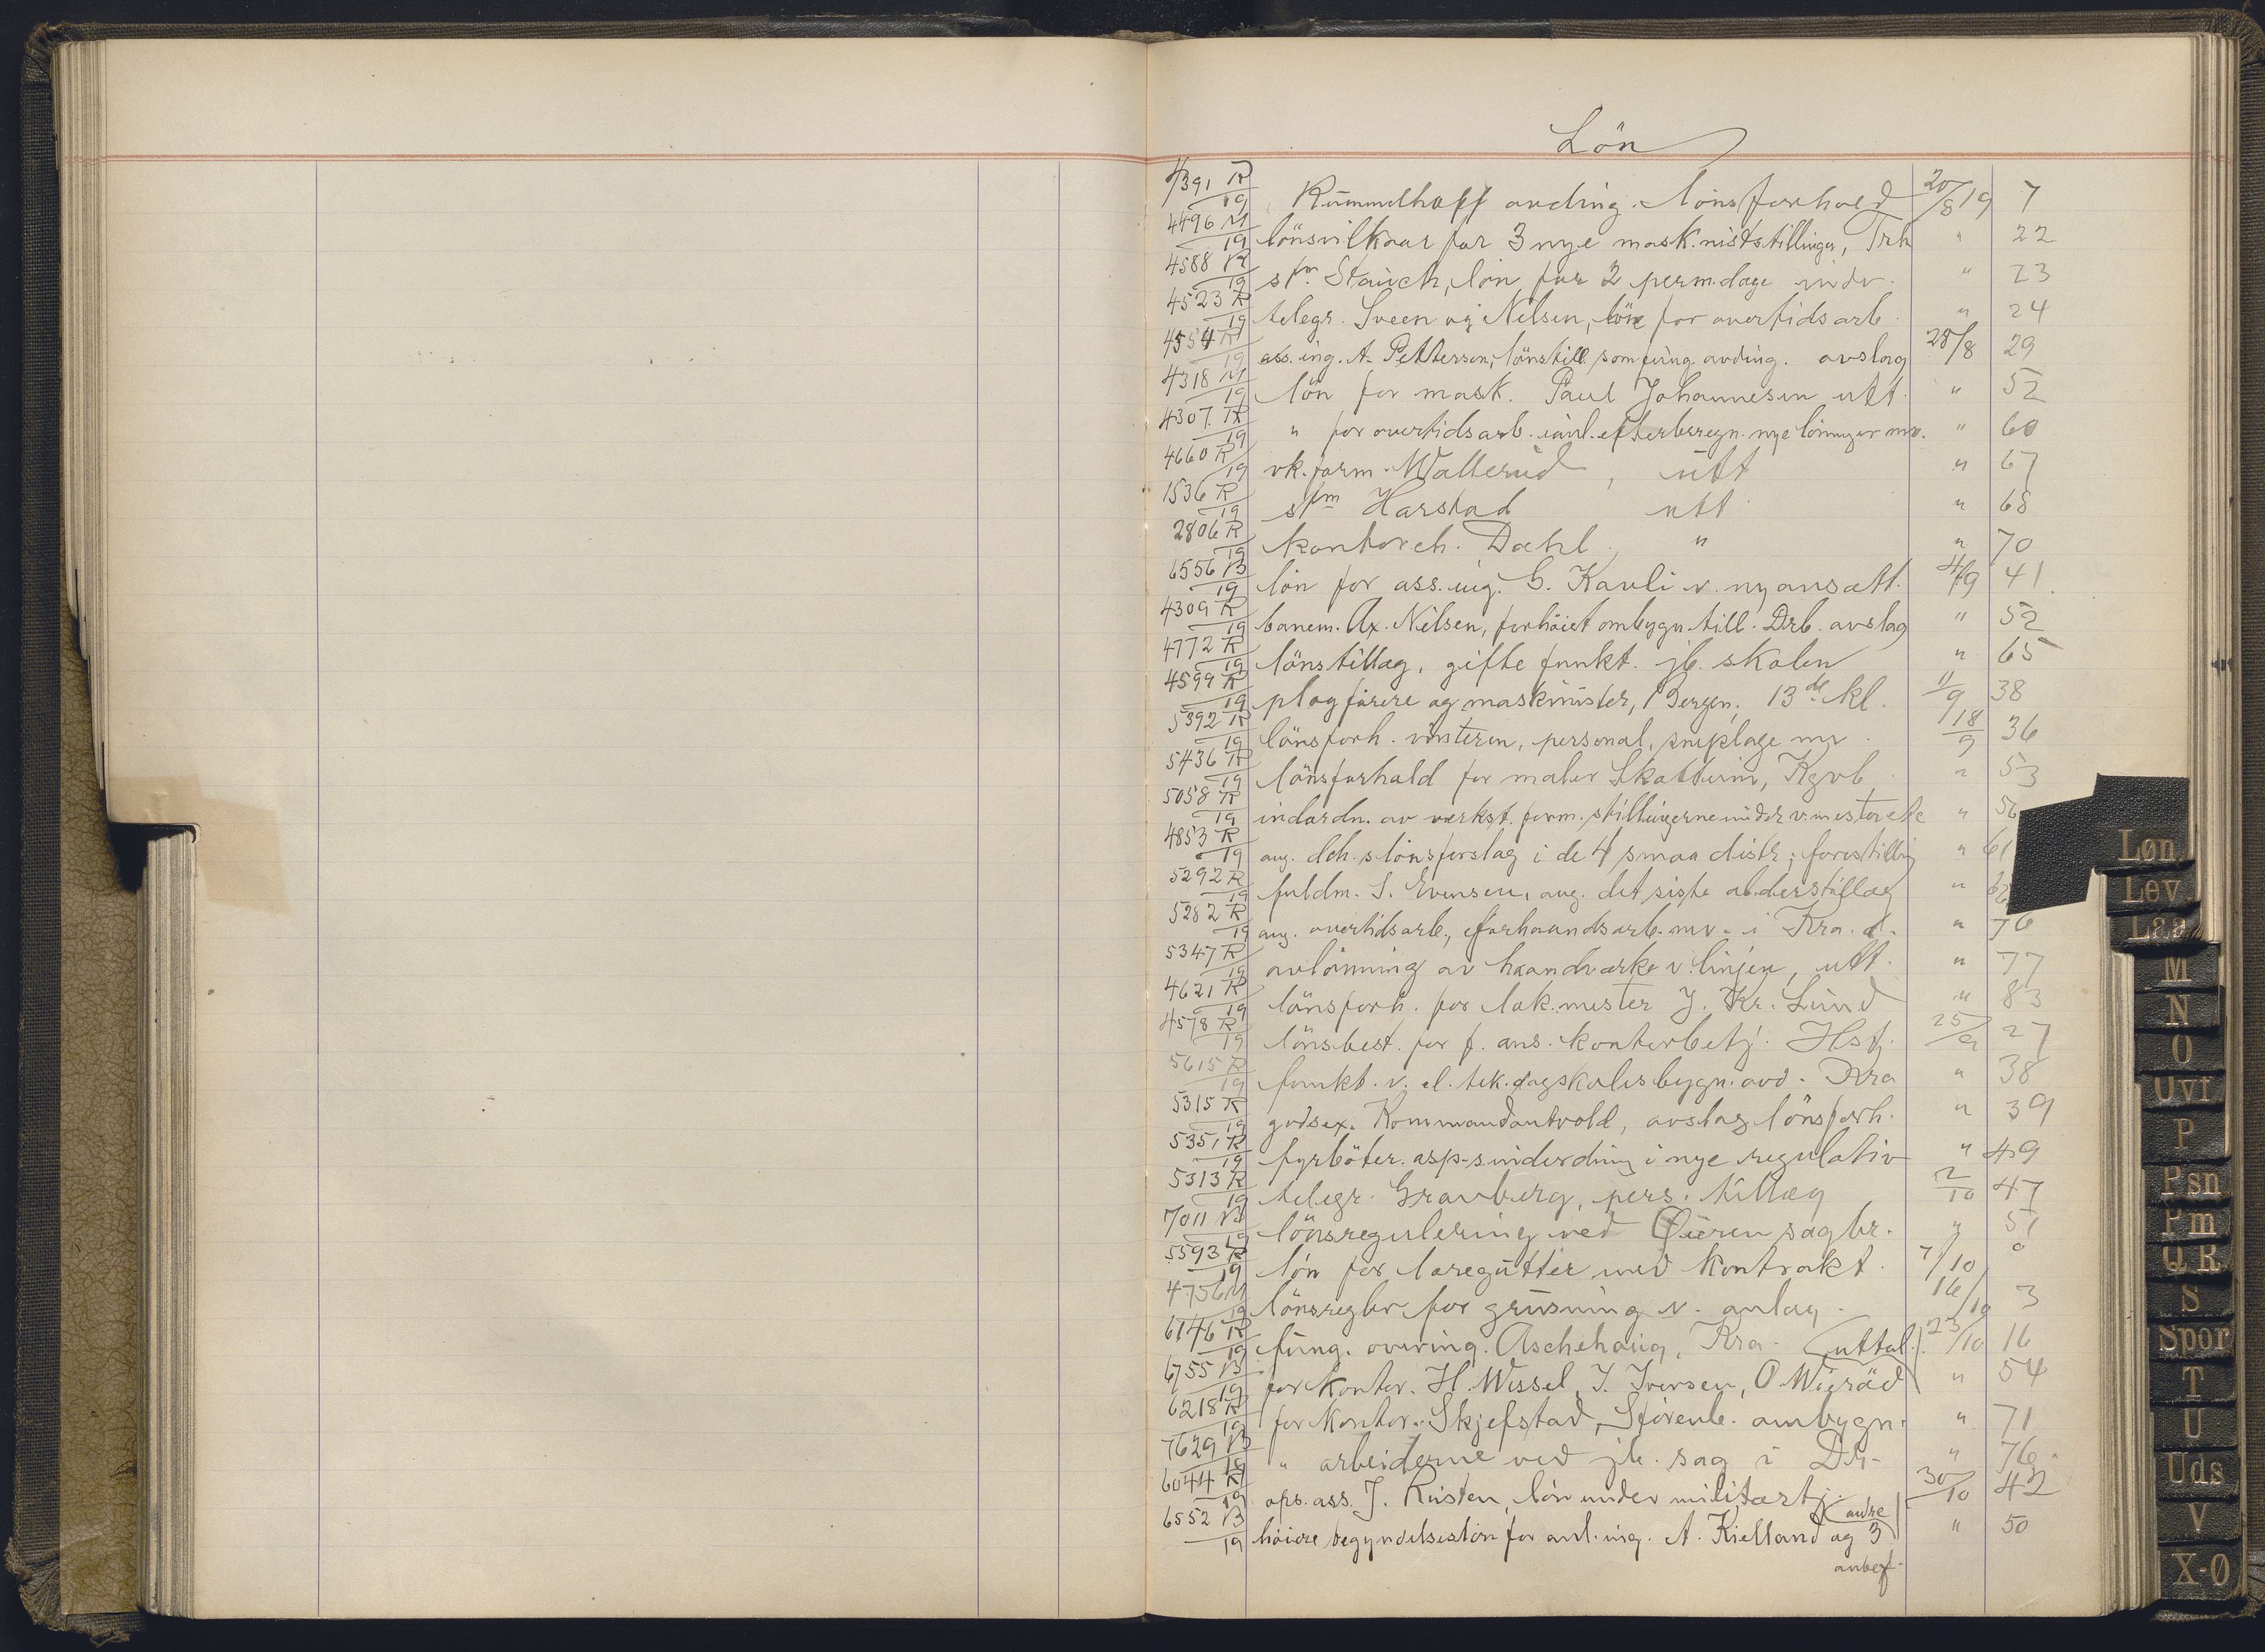 Lön
4391 R/19 Rümmelhoff avding. lönsforhold 20/8 19 7
4496 M/19 lönsvilkaar for 3 nye mask.nistsstillinger, Trh " 22
4588 R/19 stm. Stauch, lön for 2 perm.dage " 23
4523 R/19 telegr. Sveen og Nilsen, lön for overtidsarb. " 24
4554 R/19 ass. ing. A. Petterson, lönstill. som fung. avding. avslag 28/8 29
4318 M/19 lön for mask. Paul Johannesen utt. " 52
4307 R/19 " for overtidsarb. efterberegn. nye löninger mv. " 60
4660 R/19 vk. form. Wallerud, utt " 67
1536 R/19 stm Harstad utt " 68
2806 R/19 kontorch. Dahl, " " 70
6556 B/19 lön for ass. ing. G. Kavli v. nyansætt. 4/9 41
4309 R/19 banem. Ax. Nilsen, forhöiet ombygn. till. Drb. avslag " 52
4772 R/19 lönstillæg, gifte funkt. jb. skolen " 65
4599 R/19 plogförere og maskinister, Bergen, 13de kl. 11/9 38
5392 R/19 lönsforh. vinteren, personal, sneploge mv. 18/9 36
5436 R/19 lönsforhold for maler Skatturin, Kgvb " 53
5058 R/19 indordn. av verkst. form. stillingerne under v.mester " 56
4853 R/19 ang. dch. slönsforslag i de 4 smaa distr; forestilling " 61
5292 R/19 fuldm. S. Evensen, ang. det siste alderstillæg "
5282 R/19 ang. overtidsarb., forhaandsarb. mv. i Kra. d. " 76
5347 R/19 avlönning av haandverke v. linjen, utt. " 77
4621 R/19 lönsforh. for lak.mester J. Kr. Lund " 83
4578 R/19 lönsbest. for f. ans. kontorbetj. Hstj. 25/9 27
5615 R/19 funkt. v. el. tek. dagskolesbygn. avd. Kra " 38
5315 R/19 godsex. Kommandantvold, avslag lönsforh. " 39
5351 R/19 fyrböter. asp-s inderdning i nye regulativ " 49
5313 R/19 telegr. Gravberg, pers. tillæg 2/10 47
7011 B/19 lönsregulering ved Öieren sagbr. " 51
5593 R/19 lön for læregutter med kontrakt. 7/10
4756 M/19 lönsregler for grusning v. anlæg. 16/10 3
6146 R/19 fung. overing. Aschehoug, Kra. (uttal.) 23/10 16
6755 B/19 for kontor. H. Wessel, J. Iversen, O Wieröd " 54
6218 R/19 for kontor. Skjefstad, Störenb. ombygn. " 71
7629 B/19 " arbeiderne ved jb. sag i Dr. " 76
6044 R/19 ops. ass. J. Rusten, lön under militærtj. 30/10 42
6552 B/19 höiere begyndelseslön for anl. ing. A. Kielland og 3 andre " 50
anbef.
Løn
Lev.
Laa
M
N
O
Ovf
P
Psn
Pm
Q R
S
Spor
T
U
Uds
V
X-Ø